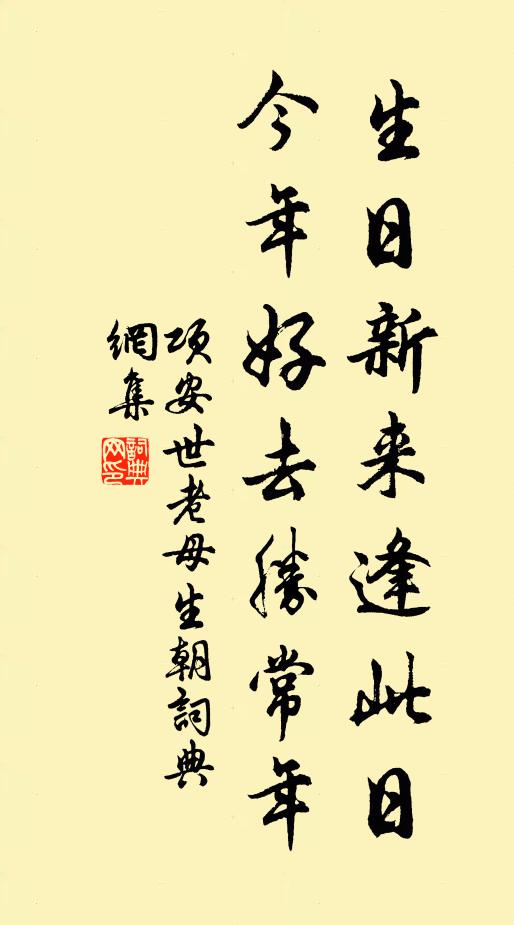 生日新来逢此日
今年好去勝常年
项安世老母生朝詞典
網集
詞典
网印